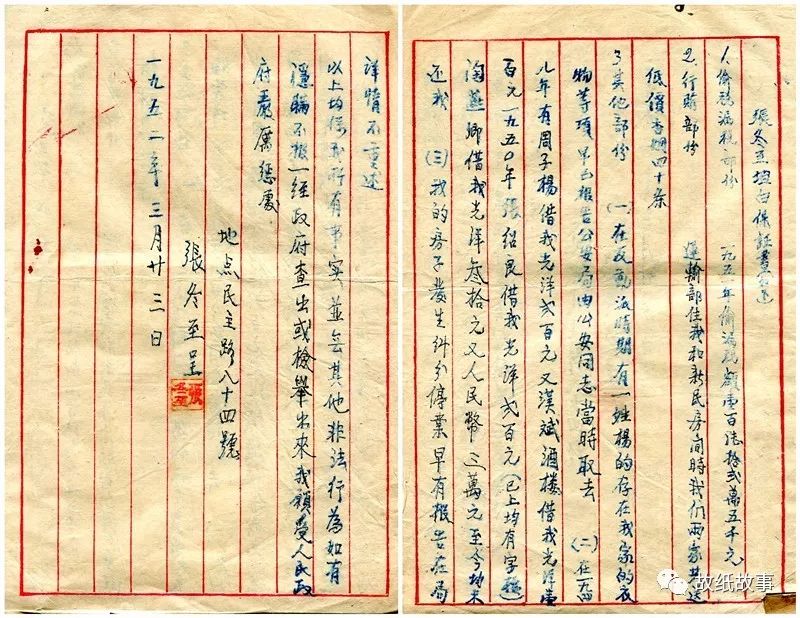 張冬至坦白保証書如下
1、偷稅漏稅部份 一九五一年偷漏稅額壹百陸拾弍萬五千元
2、行賄部份 運輸部住我和新民房间時我们兩家共送
低價香烟四十条
3其他部份 (一)在反動派時期有一姓楊的存在我家的衣
物等項早已報告公安局由公安同志當時取去 (二)在一九四
九年有周子楊借我光洋弍百元又漢斌酒樓借我光洋壹
百元一九五〇年張绍良借我光洋弍百元(已上均有字據)
燕卿借我光洋叁拾元又人民幣三萬元至今均未
还我 (三)我的房子發生糾分停業早有报告在局
详情不重述
以上均係我所有事实並无其他非法行為如有
隱瞞不报一经政府查出或檢舉出來我願受人民政
府嚴厲惩處
地点民主路八十四號
張冬至呈
一九五二年三月廿三日
故纸故事